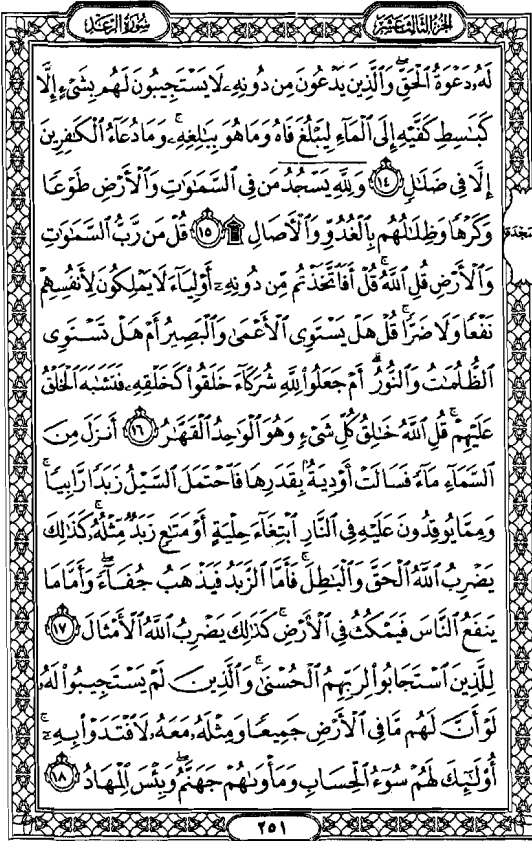 الجزء الثالث عشر سورة الرعد
لَهُۥ دَعْوَةُ ٱلْحَقِّ ۖ وَٱلَّذِينَ يَدْعُونَ مِن دُونِهِۦ لَا يَسْتَجِيبُونَ لَهُم بِشَىْءٍ إِلَّا
كَبَٰسِطِ كَفَّيْهِ إِلَى ٱلْمَآءِ لِيَبْلُغَ فَاهُ وَمَا هُوَ بِبَٰلِغِهِۦ ۚ وَمَا دُعَآءُ ٱلْكَٰفِرِينَ
إِلَّا فِى ضَلَٰلٍ ١٤ وَلِلَّهِ يَسْجُدُ مَن فِى ٱلسَّمَٰوَٰتِ وَٱلْأَرْضِ طَوْعًا
وَكَرْهًا وَظِلَٰلُهُم بِٱلْغُدُوِّ وَٱلْءَاصَالِ ۩ ١٥ قُلْ مَن رَّبُّ ٱلسَّمَٰوَٰتِ
سجدة
وَٱلْأَرْضِ قُلِ ٱللَّهُ ۚ قُلْ أَفَٱتَّخَذْتُم مِّن دُونِهِۦٓ أَوْلِيَآءَ لَا يَمْلِكُونَ لِأَنفُسِهِمْ
نَفْعًا وَلَا ضَرًّا ۚ قُلْ هَلْ يَسْتَوِى ٱلْأَعْمَىٰ وَٱلْبَصِيرُ أَمْ هَلْ تَسْتَوِى
ٱلظُّلُمَٰتُ وَٱلنُّورُ ۗ أَمْ جَعَلُوا۟ لِلَّهِ شُرَكَآءَ خَلَقُوا۟ كَخَلْقِهِۦ فَتَشَٰبَهَ ٱلْخَلْقُ
عَلَيْهِمْ ۚ قُلِ ٱللَّهُ خَٰلِقُ كُلِّ شَىْءٍ وَهُوَ ٱلْوَٰحِدُ ٱلْقَهَّٰرُ ١٦ أَنزَلَ مِنَ
ٱلسَّمَآءِ مَآءً فَسَالَتْ أَوْدِيَةٌۢ بِقَدَرِهَا فَٱحْتَمَلَ ٱلسَّيْلُ زَبَدًا رَّابِيًا ۚ
وَمِمَّا يُوقِدُونَ عَلَيْهِ فِى ٱلنَّارِ ٱبْتِغَآءَ حِلْيَةٍ أَوْ مَتَٰعٍ زَبَدٌ مِّثْلُهُۥ ۚ كَذَٰلِكَ
يَضْرِبُ ٱللَّهُ ٱلْحَقَّ وَٱلْبَٰطِلَ ۚ فَأَمَّا ٱلزَّبَدُ فَيَذْهَبُ جُفَآءً ۖ وَأَمَّا مَا
يَنفَعُ ٱلنَّاسَ فَيَمْكُثُ فِى ٱلْأَرْضِ ۚ كَذَٰلِكَ يَضْرِبُ ٱللَّهُ ٱلْأَمْثَالَ ١٧
لِلَّذِينَ ٱسْتَجَابُوا۟ لِرَبِّهِمُ ٱلْحُسْنَىٰ ۚ وَٱلَّذِينَ لَمْ يَسْتَجِيبُوا۟ لَهُۥ
لَوْ أَنَّ لَهُم مَّا فِى ٱلْأَرْضِ جَمِيعًا وَمِثْلَهُۥ مَعَهُۥ لَٱفْتَدَوْا۟ بِهِۦٓ ۚ
أُو۟لَٰٓئِكَ لَهُمْ سُوٓءُ ٱلْحِسَابِ وَمَأْوَىٰهُمْ جَهَنَّمُ ۖ وَبِئْسَ ٱلْمِهَادُ ١٨
٢٥١